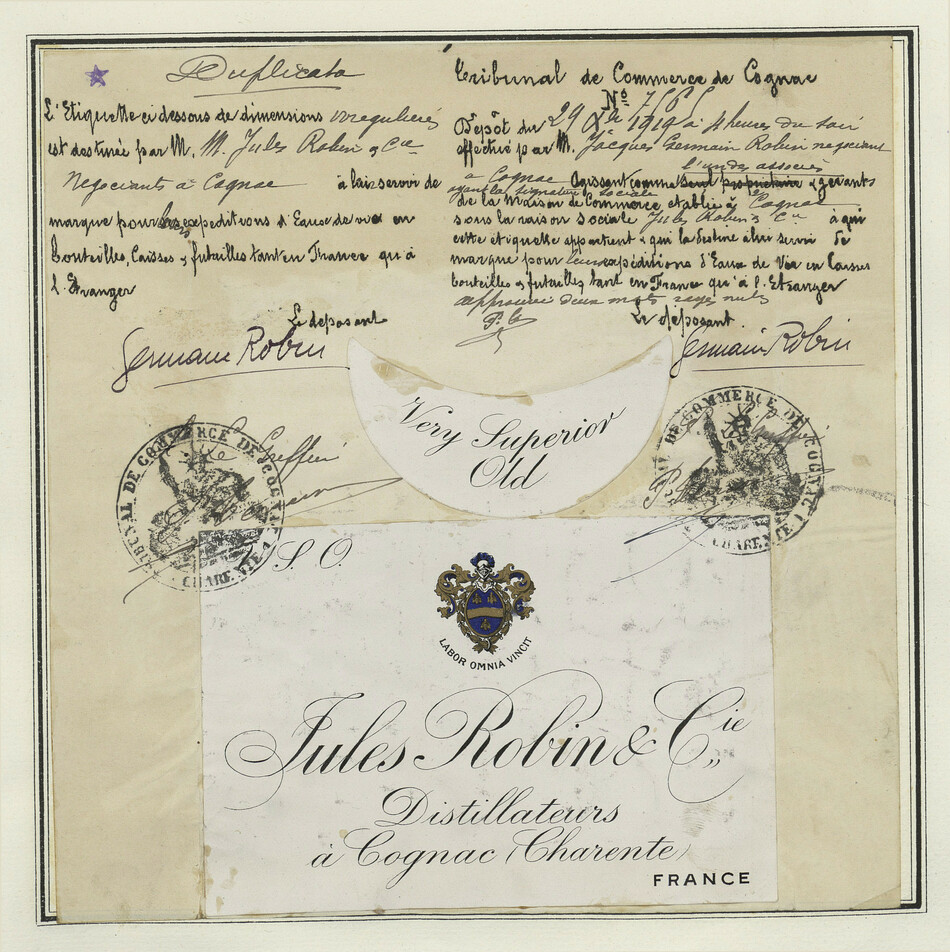 Duplicata
L'Etiquette ci dessous de dimensions irregulieres
est destinée par M. M. Jules Robin & Cie
Negociants à Cognac à lui servir de
marque pour expeditions d'Eaux de vie en
bouteilles, Caisses & futailles tant en France qu'à
l'Etranger
Le déposant
Germain Robin
Le Greffier
TRIBUNAL DE COMMERCE DE COGNAC
CHARENTE
Tribunal de Commerce de Cognac
No
Dépôt du 29 1919 à 4 heures du soir
effectué par M. Jacques Germain Robin negociant
l'un des associés
à Cognac Agissant comme seul propriétaire & gérants
ayant la signature sociale
de la Maison de Commerce etablie à Cognac
sous la raison sociale Jules Robin & Cie à qui
cette etiquette appartient & qui la destine à lui servir de
marque pour leurs expéditions d'Eaux de Vie en Caisses
bouteilles & futailles tant en France qu'à l'Etranger
approuvé deux mots rayés nuls
Le déposant
Germain Robin
TRIBUNAL DE COMMERCE DE COGNAC
CHARENTE
Very Superior
Old
V.S.O.
LABOR OMNIA VINCIT
Jules Robin & Cie
Distillateurs
à Cognac (Charente)
FRANCE